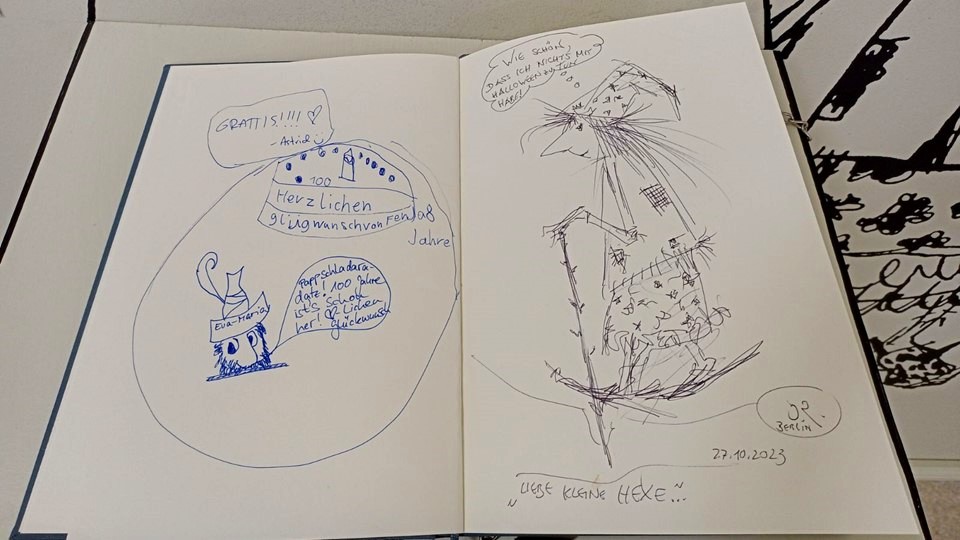 GRATTIS!!!! ♡
-Astrid
100
Herzlichen
glügwunsch von Fenja 8
Jahre
Eva-Maria
Pappschladara-
datz! 100 Jahre
ist's schon
her! ♡Lichen
glückwunsch
WIE SCHÖN,
DASS ICH NICHTS MIT
HALLOWEEN ZU TUN
HABE!
BERLIN
27.10.2023
"LIEBE KLEINE HEXE..."